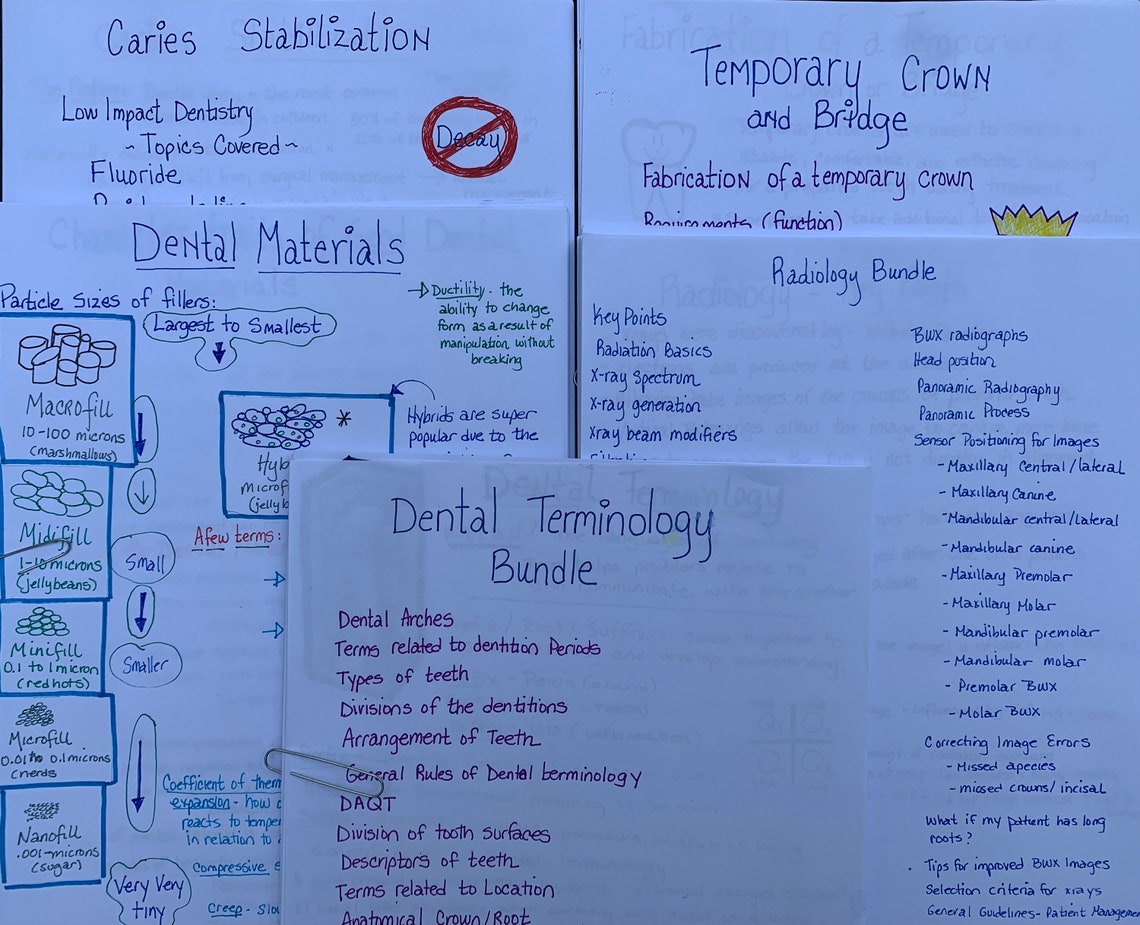 Caries Stabilization
Low Impact Dentistry
~ Topics Covered ~
Fluoride
Decay
Temporary Crown
and Bridge
Fabrication of a temporary crown
Requirements (function)
Dental Materials
Particle sizes of fillers:
Largest to Smallest
→ Ductility - the
ability to change
form as a result of
manipulation without
breaking
Macrofill
10-100 microns
(marshmallows)
*
Hyb
microf
(jellyb
Hybrids are super
popular due to the
Midifill
1-10 microns
(jellybeans)
Small
A few terms:
Minifill
0.1 to 1 micron
(red hots)
Smaller
Microfill
0.01 to 0.1 microns
(nerds
Nanofill
.001-microns
(sugar)
Very Very
tiny
Coefficient of therm
expansion - how
reacts to temper
in relation to
Compressive
Creep - slo
Radiology Bundle
Key Points
Radiation Basics
X-ray spectrum
X-ray generation
Xray beam modifiers
BWX radiographs
Head position
Panoramic Radiography
Panoramic Process
Sensor Positioning for Images
- Maxillary Central/lateral
- Maxillary Canine
- Mandibular central/lateral
- Mandibular canine
- Maxillary Premolar
- Maxillary Molar
- Mandibular premolar
- Mandibular molar
- Premolar BWX
- Molar BWX
Correcting Image Errors
- Missed apecies
- missed crowns/incisal
What if my patient has long
roots?
Tips for improved BWX Images
Selection criteria for xrays
General Guidelines - Patient Managemen
Dental Terminology
Bundle
Dental Arches
Terms related to dentition Periods
Types of teeth
Divisions of the dentitions
Arrangement of Teeth
General Rules of Dental terminology
DAQT
Division of tooth surfaces
Descriptors of teeth
Terms related to Location
Anatomical Crown/Root